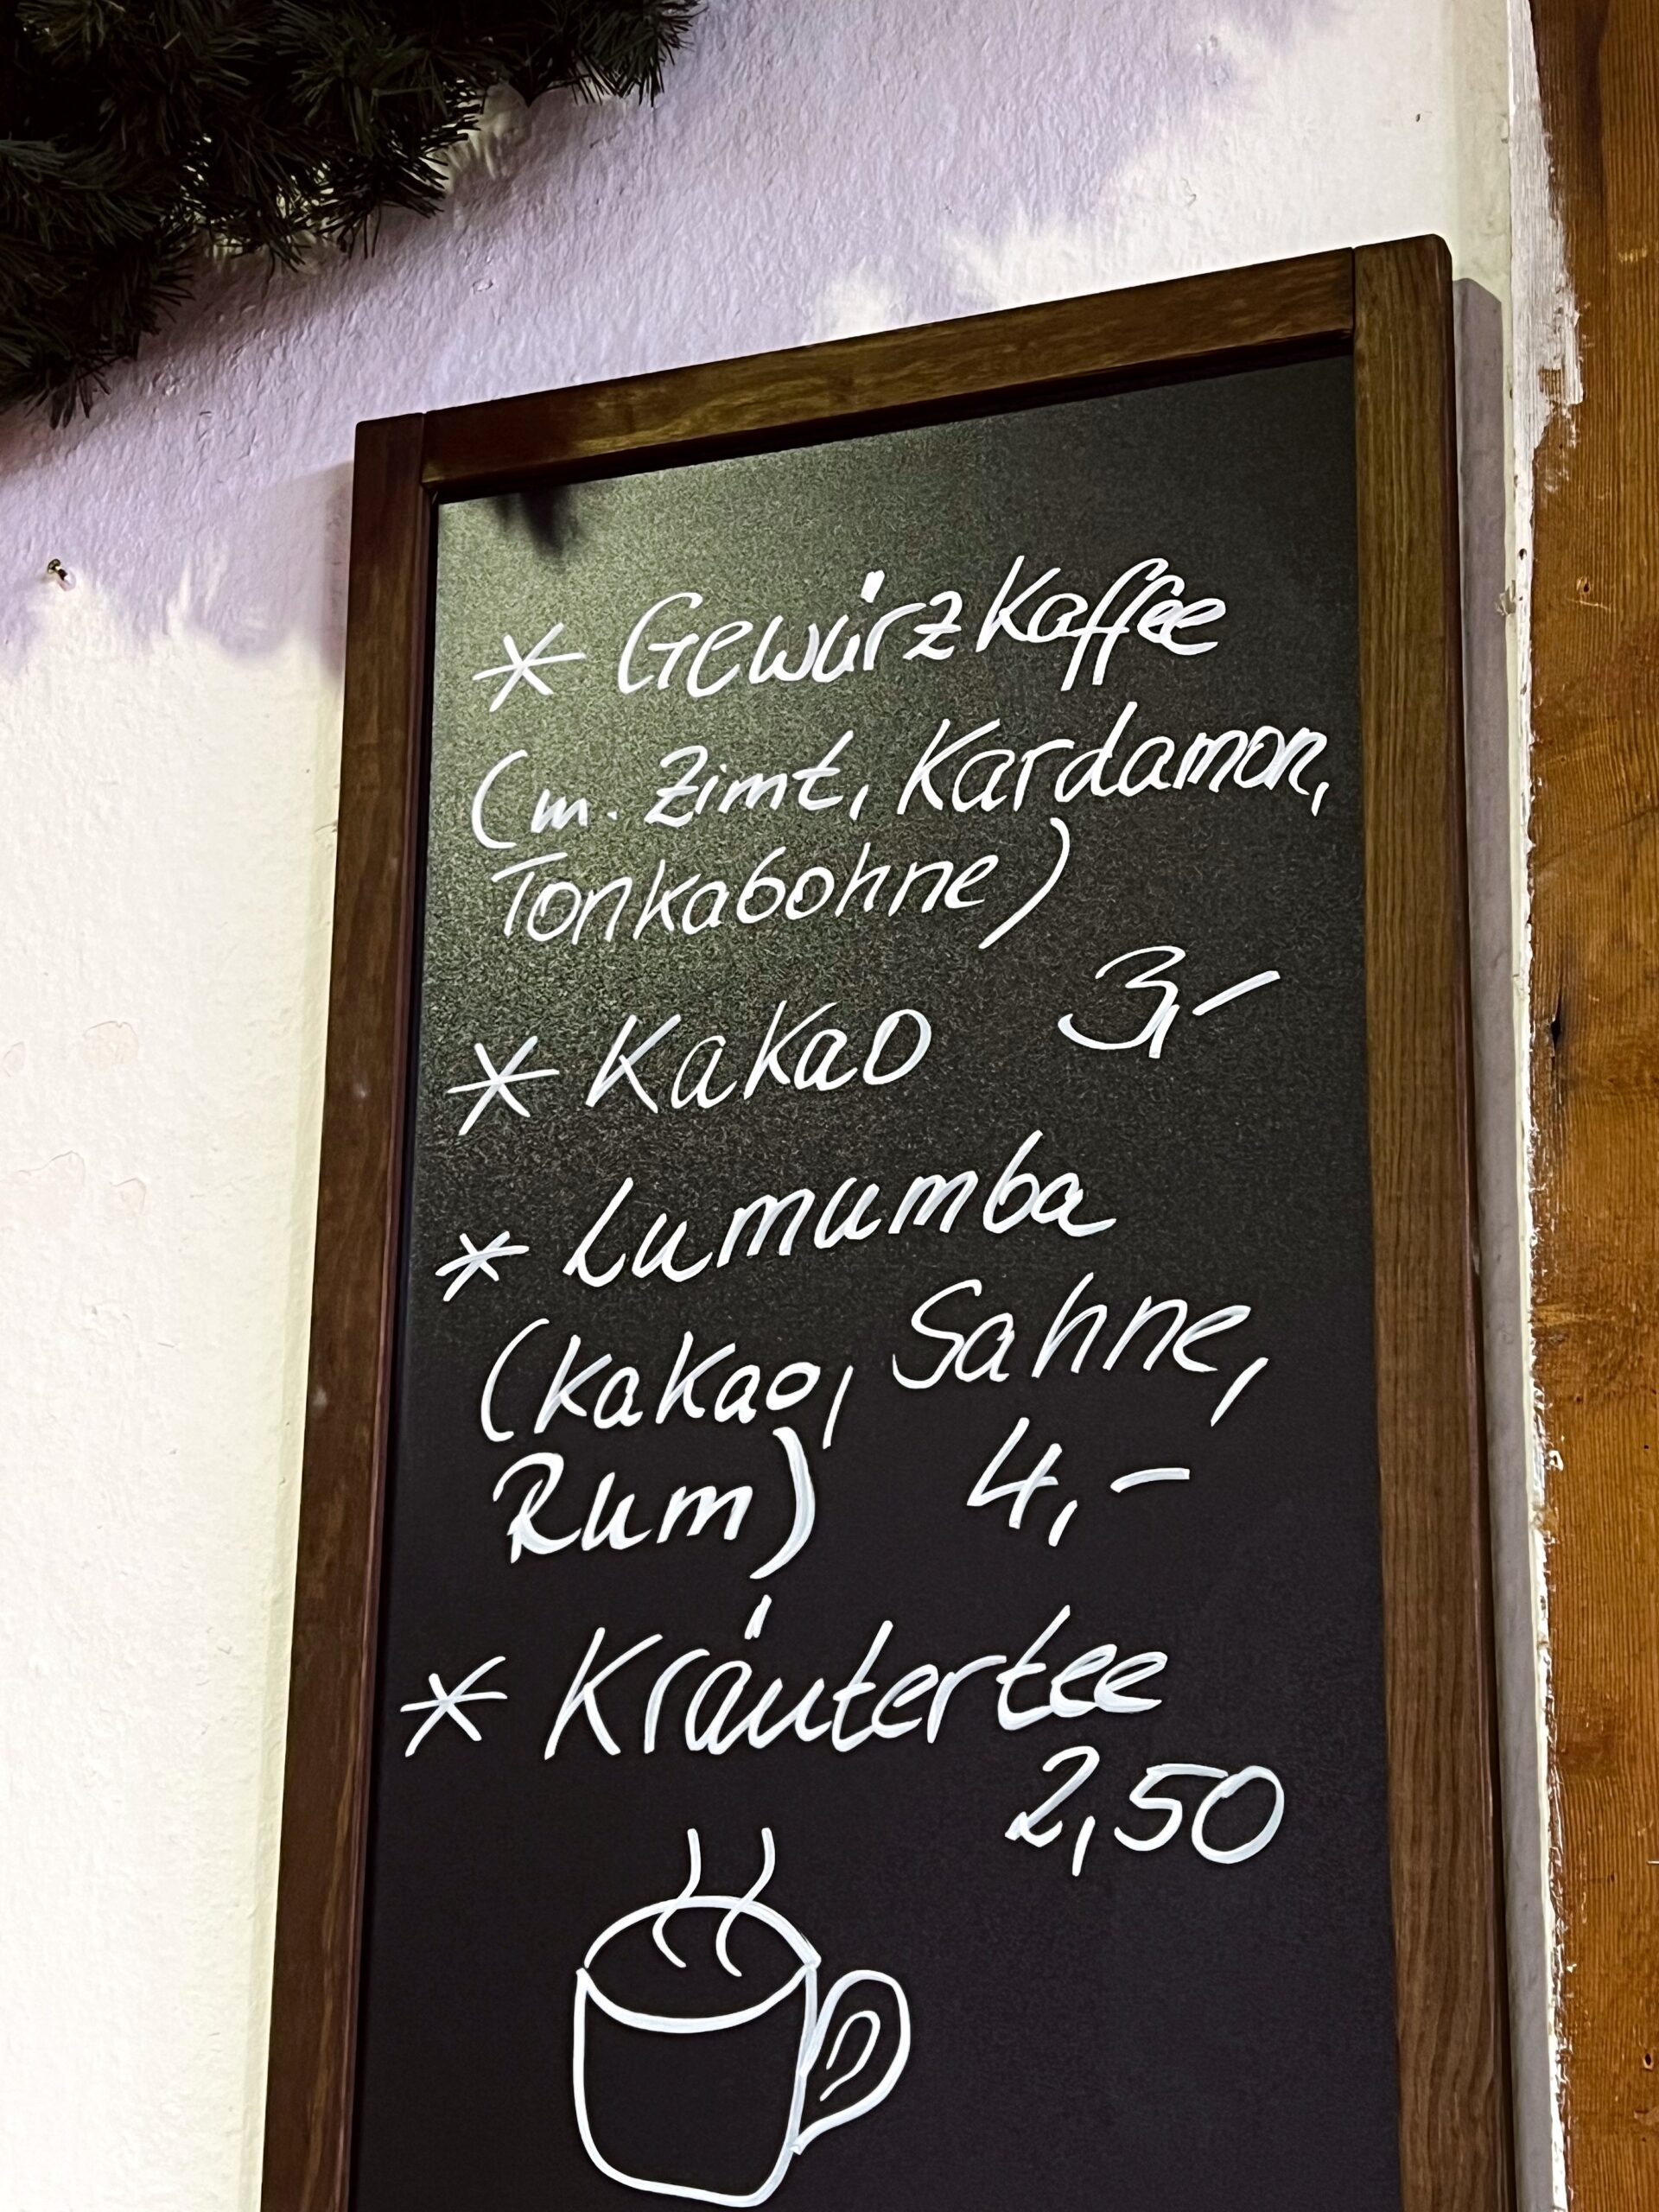 * Gewürzkaffee
(m. Zimt, Kardamon,
Tonkabohne)
* Kakao 3,-
* Lumumba
(Kakao, Sahne,
Rum) 4,-
* Kräutertee
2,50